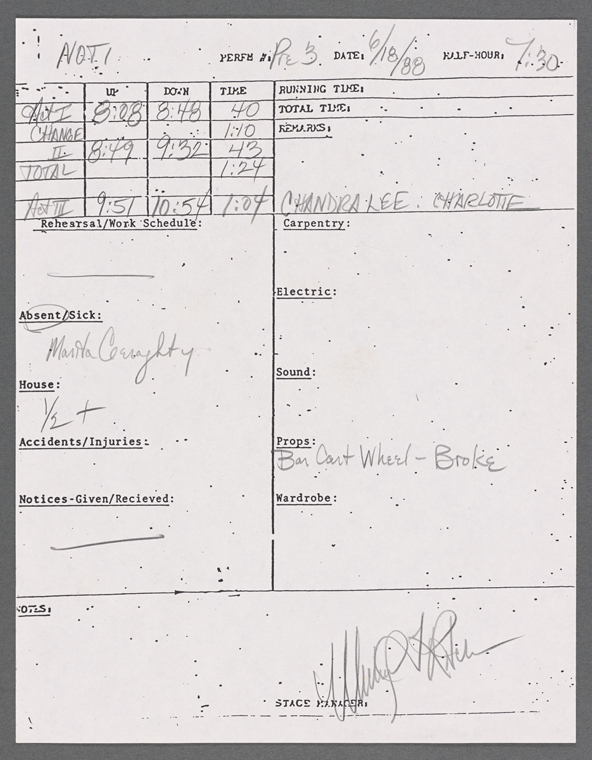 NOTI PERFM #: Pre 3 DATE: 6/18/88 HALF-HOUR: 7:30
UP DOWN TIME RUNNING TIME:
Act I 8:08 8:48 40 TOTAL TIME:
CHANGE 1:10 REMARKS:
II 8:49 9:32 43
TOTAL 1:24
Act III 9:51 10:54 1:04 CHANDRA LEE: CHARLOTTE
Rehearsal/Work Schedule: Carpentry:
Electric:
Absent/Sick:
Marita Geraghty
Sound:
House:
1/2 +
Accidents/Injuries: Props:
Bar Cart Wheel - Broke
Notices-Given/Recieved: Wardrobe:
NOTES:
STAGE MANAGER: